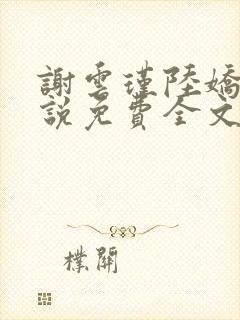 謝雲瑾陸嬌
說免費全文
樸開